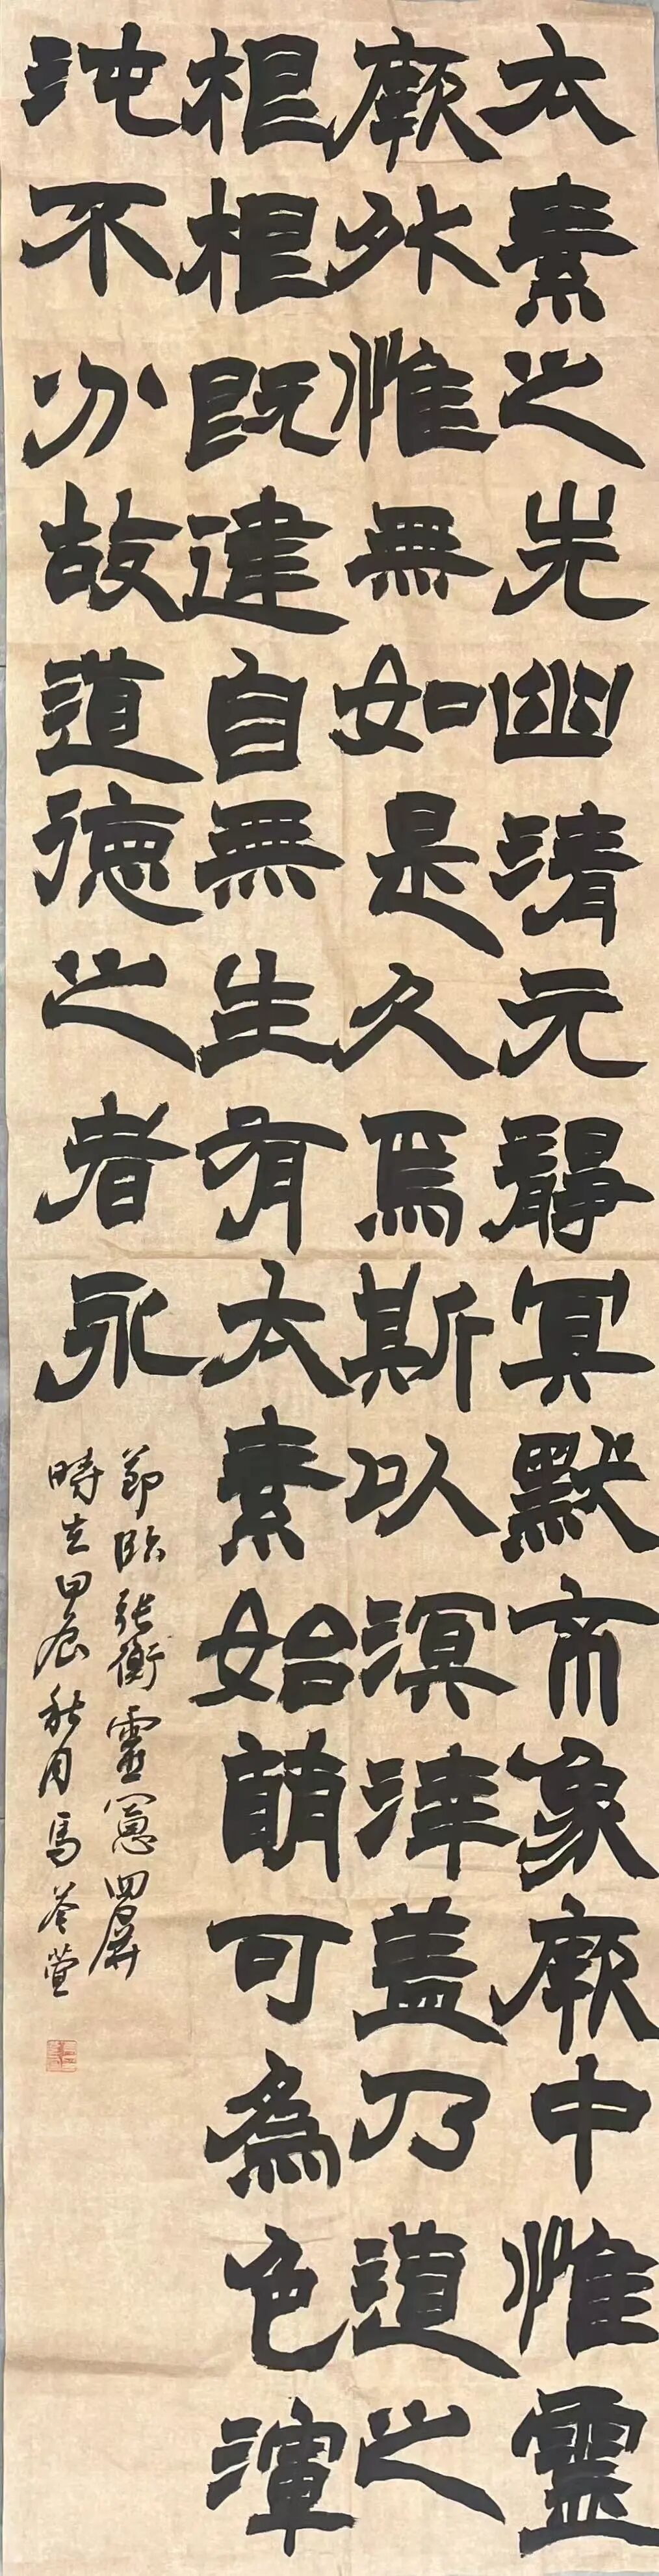 太素之先幽清元靜冥默帝象厥中惟靈
厥外惟無如是久焉斯以溟涬蓋乃道之
根根既建自無生有太素始萌可為色渾
沌不分故道德之者永
節臨張衡靈憲四屏
時在甲辰秋月馬荃萱